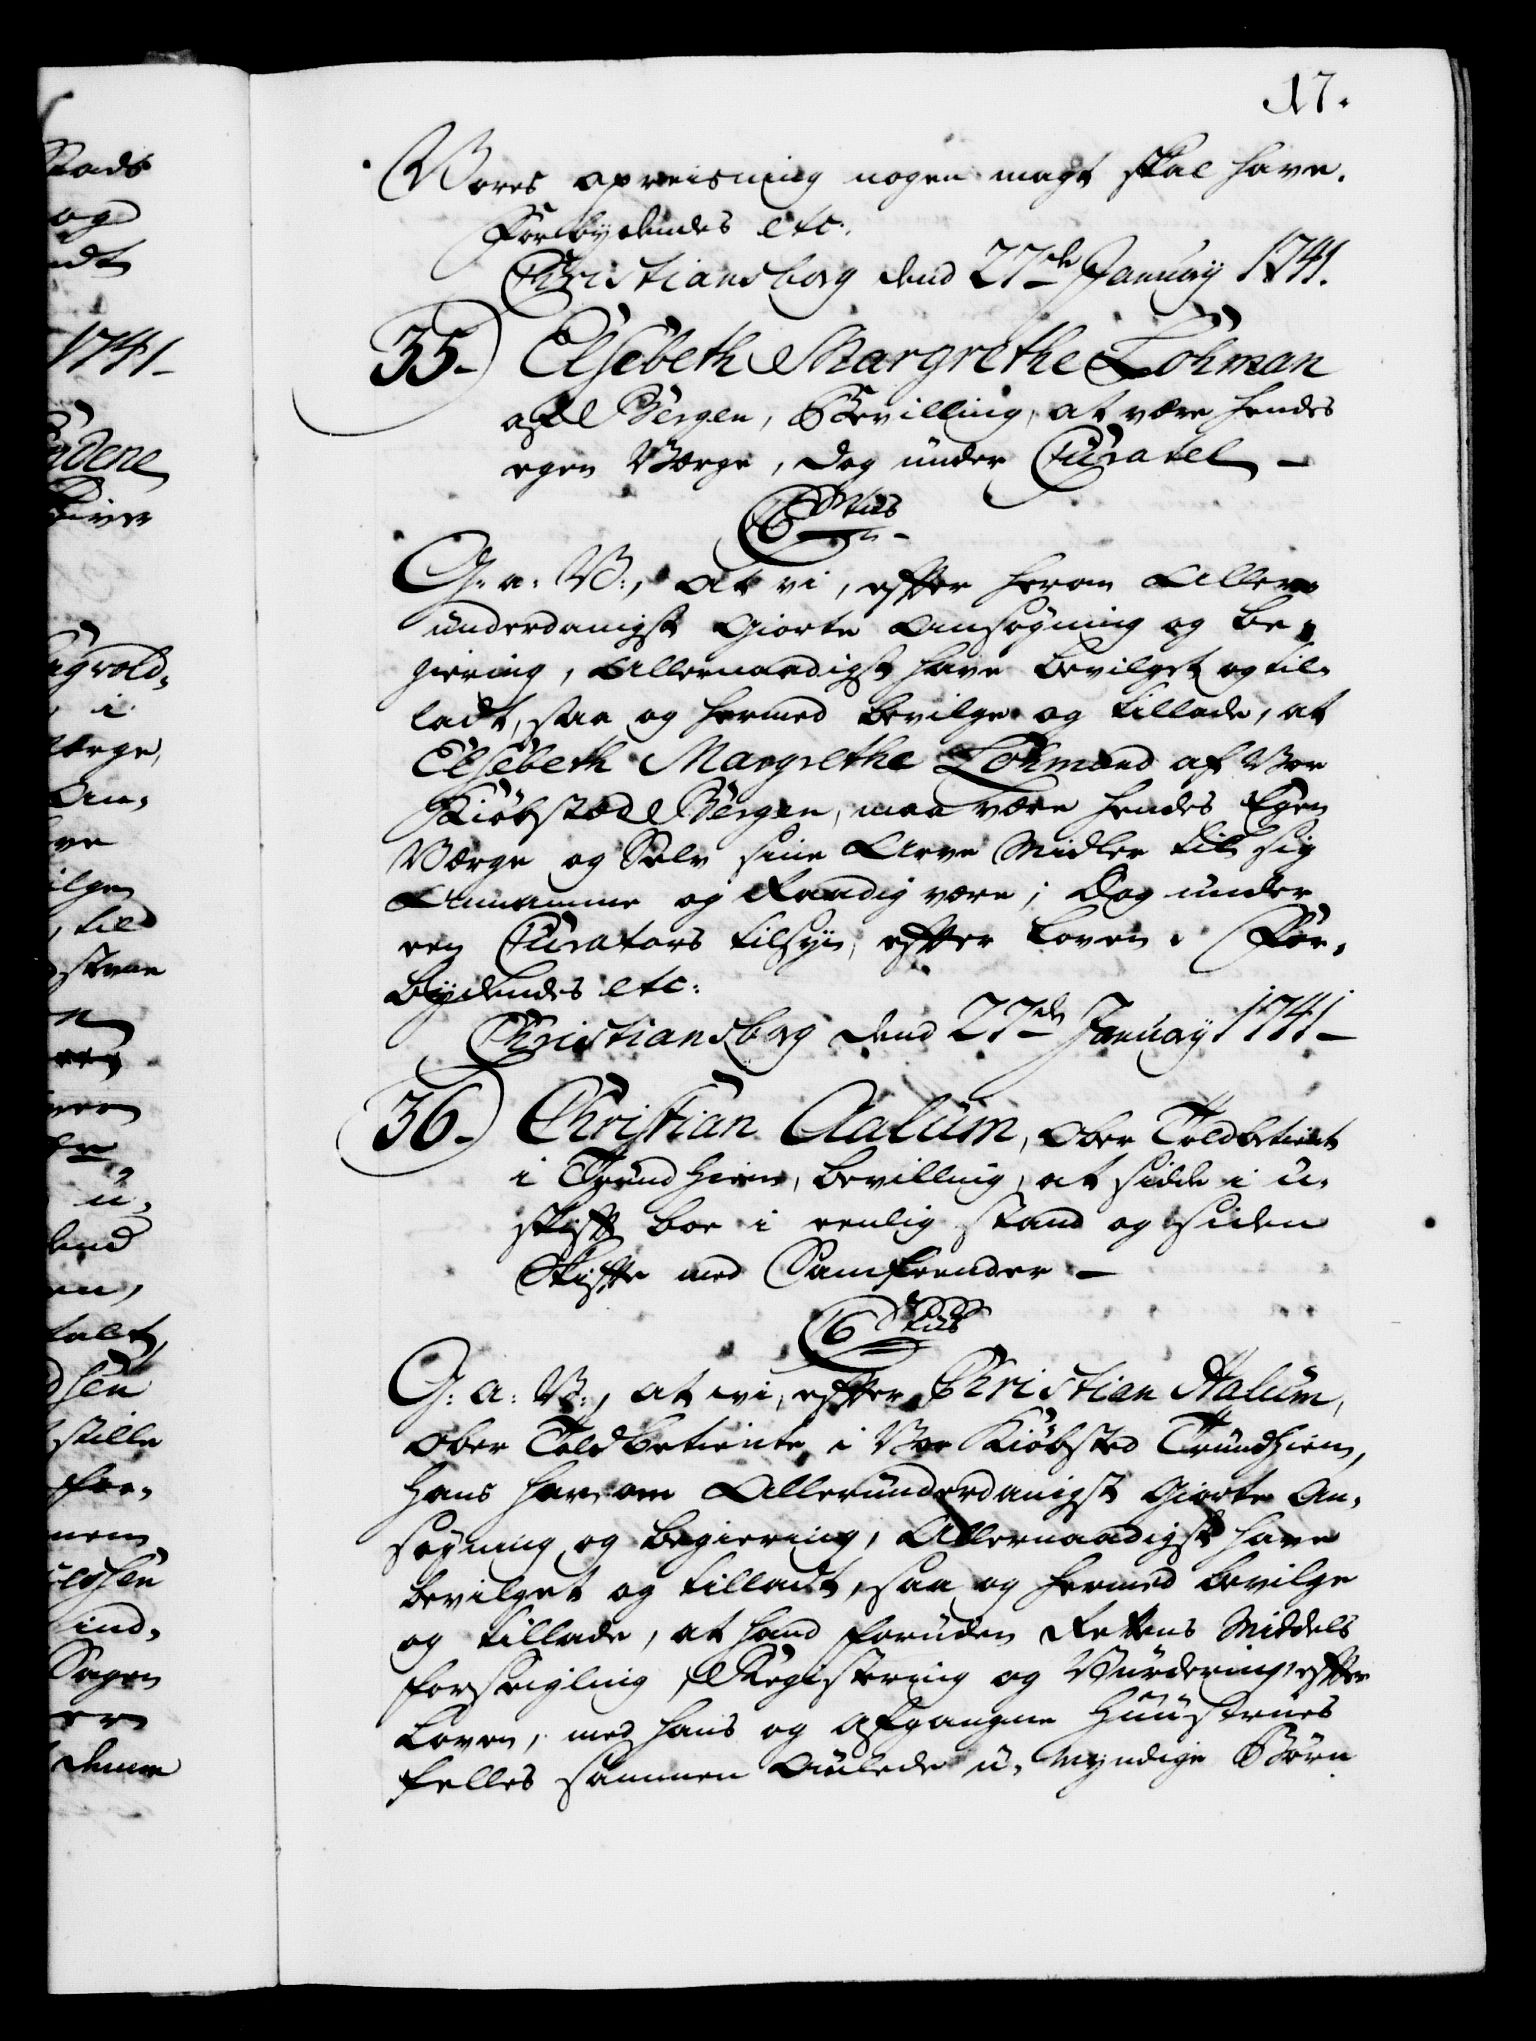 17.
Vores opreisning nogen magt skal have.
Forbydendes etc:
Christiansborg dend 27de January 1741.
35. Elsebeth Margrethe Lohman
af Bergen, Bevilling, at være hendes
egen Værge, dog under Curatel
G: a: V:, at vi, efter herom Aller-
underdanigst giorte Ansøgning og Be-
giering, Allernaadigst have bevilget og til-
ladt, saa og hermed bevilge og tillade, at
Elsebeth Margrethe Lohmand af Vor
Kiøbsted Bergen, maa være hendes Egen
Værge og Selv sine Arve Midler til sig
Annamme og Raadig være; Dog under
een Curators tilsyn, efter Loven. For-
bydendes etc:
Christiansborg dend 27de January 1741
36. Christian Aalum, Ober Toldbetient
i Trundhiem, bevilling, at sidde i u-
skift boe i eenlig stand og siden
Skifte med Samfrender
G: a: V:, at vi, efter Christian Aalum,
Ober Toldbetiente i Vor Kiøbsted Trundhiem,
Hans herom Allerunderdanigst giorte An-
søgning og begiering, Allernaadigst have
bevilget og tilladt, saa og hermed bevilge
og tillade, at hand foruden Rettens Middels
forseigling, Registering og Vurdering efter
Loven, med hans og afgangne Huustrues
felles sammen Aulede u-myndige Børn